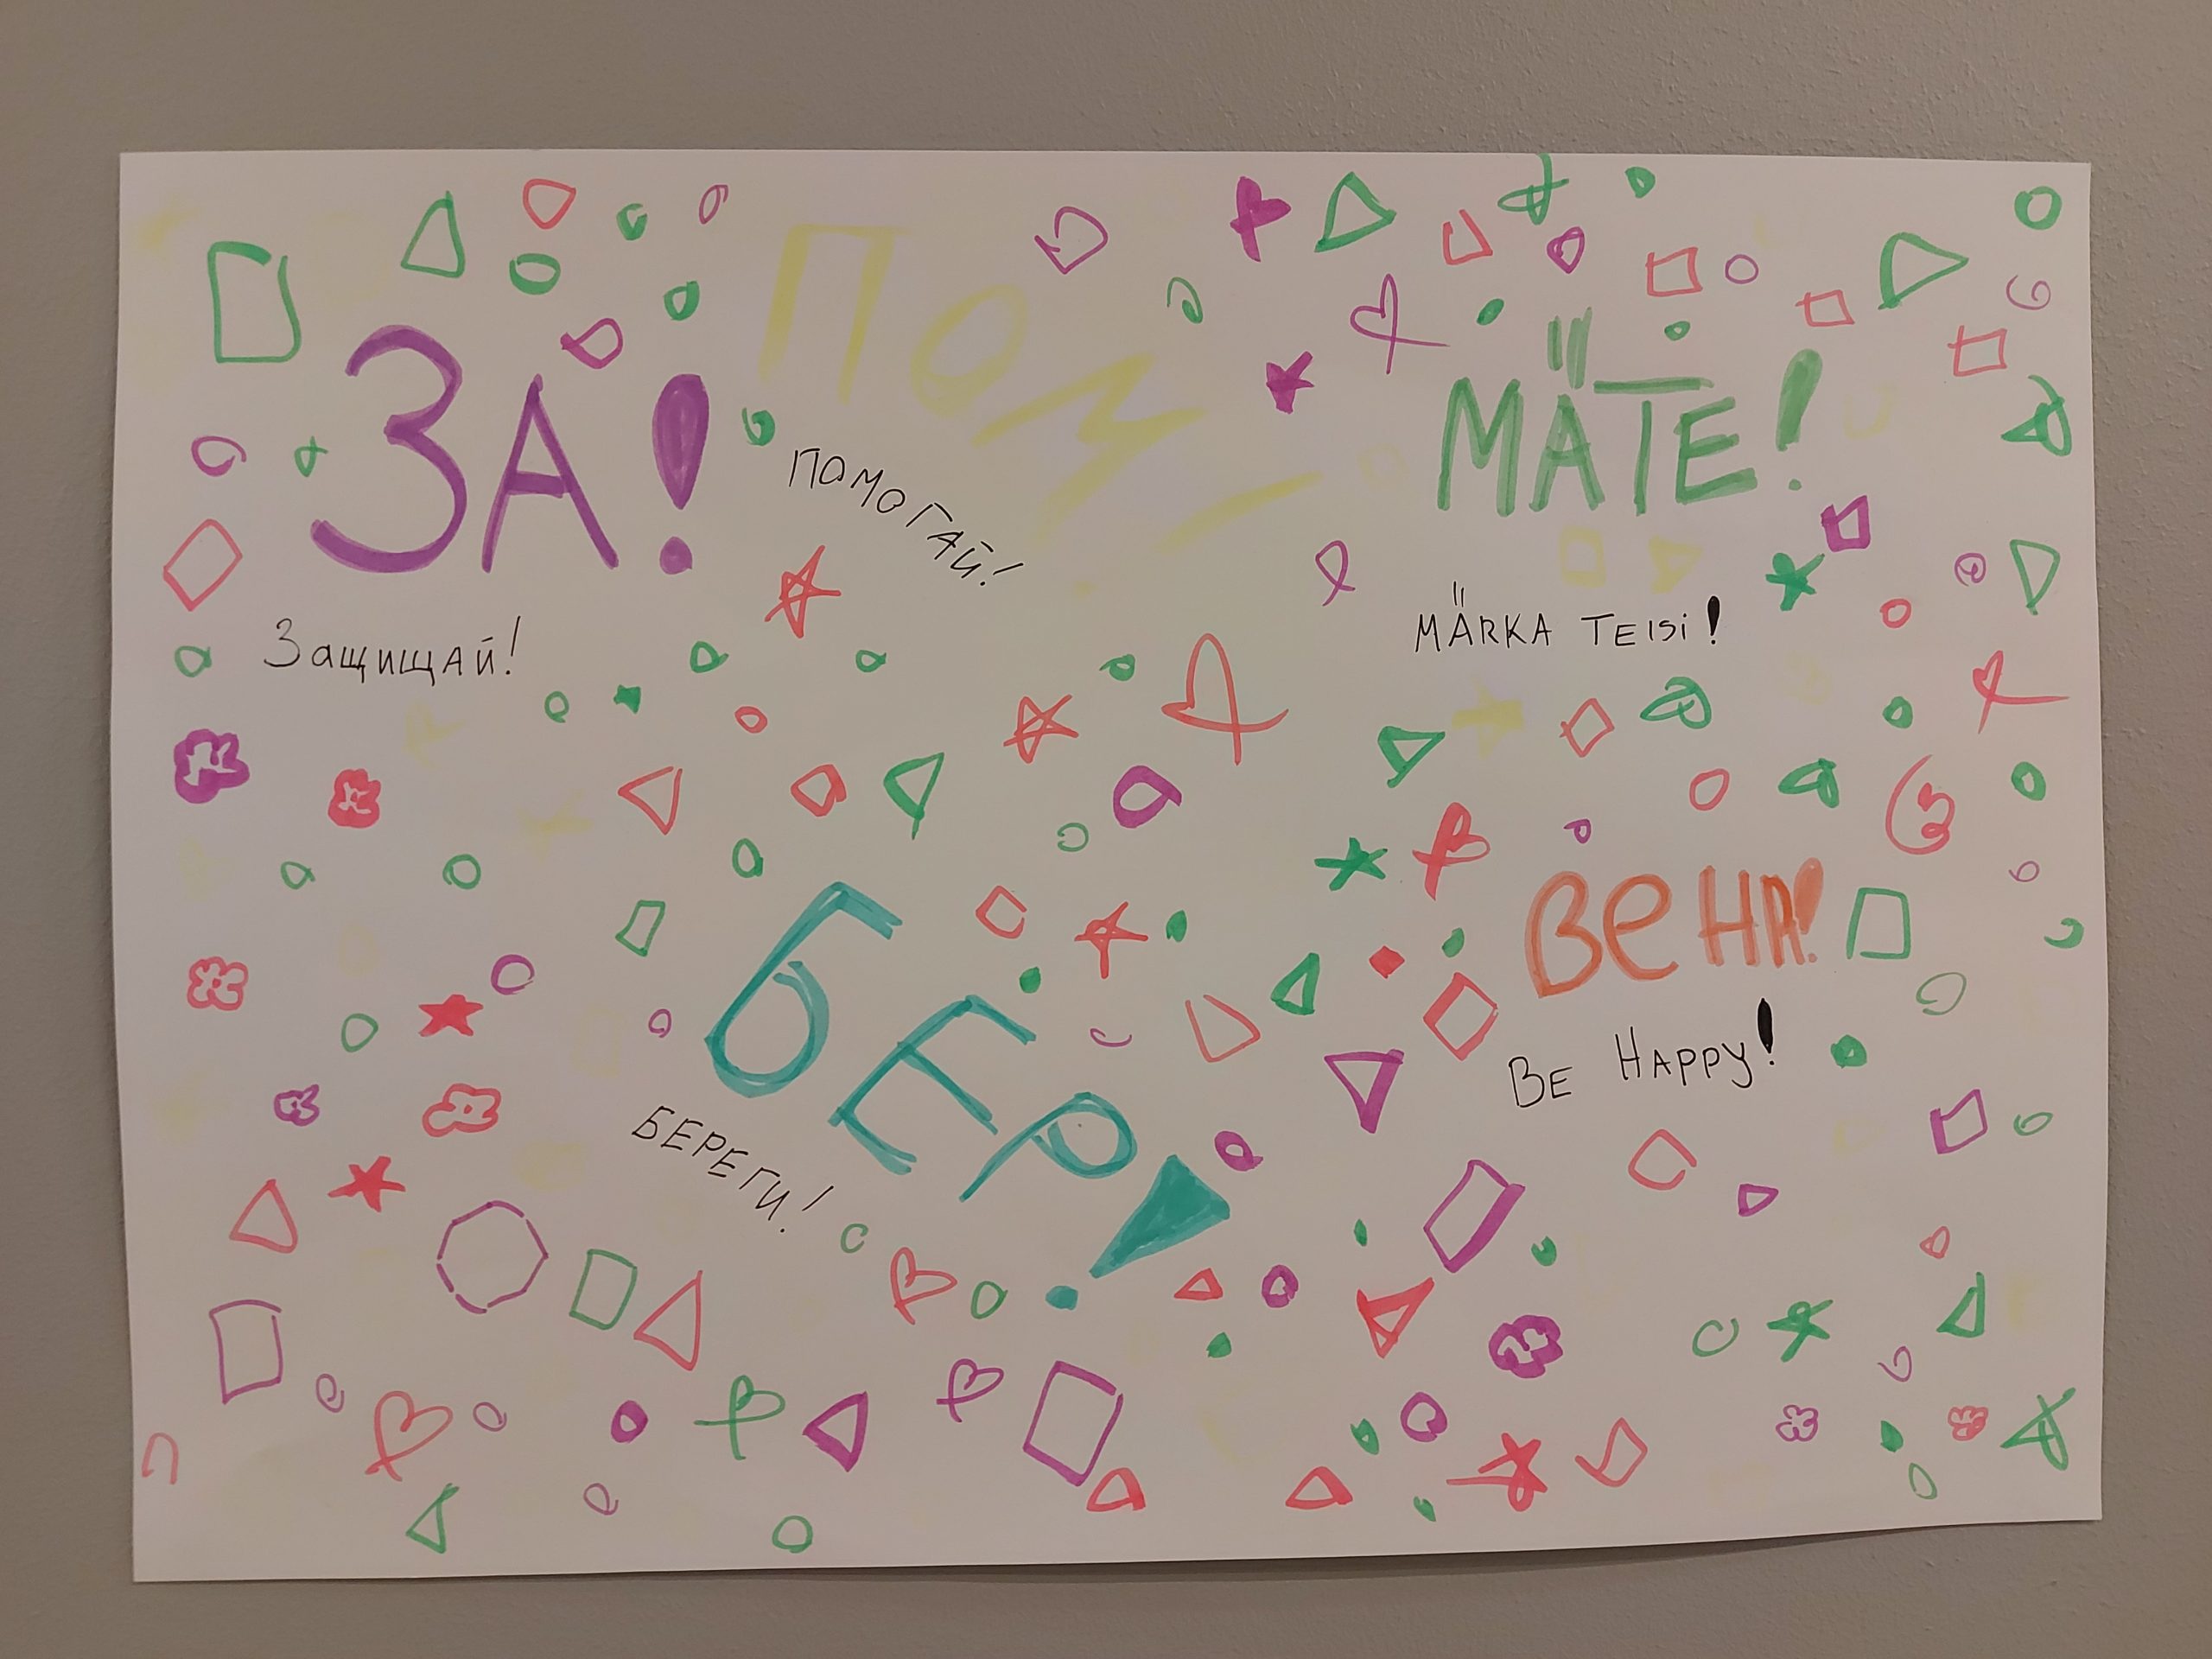 ЗА!
Защищай!
ПОМ!
ПОМОГАЙ!
MÄTE!
MÄRKA TEISI!
БЕР!
БЕРЕГИ!
BE HA!
BE HAPPY!